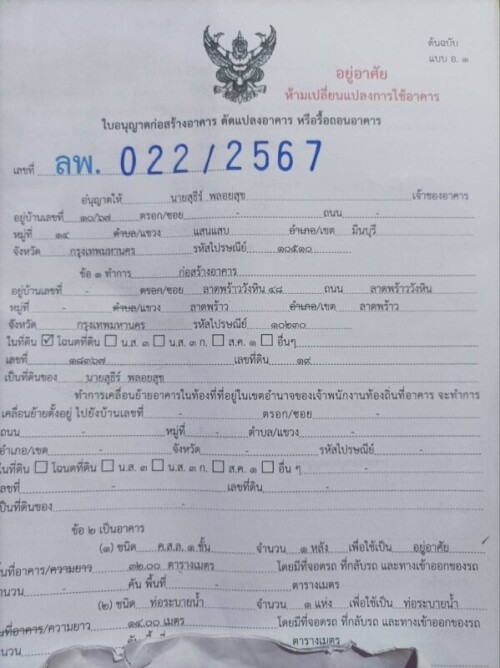 ต้นฉบับ
แบบ อ. ๑
อยู่อาศัย
ห้ามเปลี่ยนแปลงการใช้อาคาร
ใบอนุญาตก่อสร้างอาคาร ดัดแปลงอาคาร หรือรื้อถอนอาคาร
เลขที่ ลพ. 022/2567
อนุญาตให้ นายสุธีร์ พลอยสุข เจ้าของอาคาร
อยู่บ้านเลขที่ ๑๐/๖๗ ตรอก/ซอย - ถนน -
หมู่ที่ ๑๔ ตำบล/แขวง แสนแสบ อำเภอ/เขต มีนบุรี
จังหวัด กรุงเทพมหานคร รหัสไปรษณีย์ ๑๐๕๑๐
ข้อ ๑ ทำการ ก่อสร้างอาคาร
อยู่บ้านเลขที่ - ตรอก/ซอย ลาดพร้าววังหิน ๔๘ ถนน ลาดพร้าววังหิน
หมู่ที่ - ตำบล/แขวง ลาดพร้าว อำเภอ/เขต ลาดพร้าว
จังหวัด กรุงเทพมหานคร รหัสไปรษณีย์ ๑๐๒๓๐
ในที่ดิน โฉนดที่ดิน น.ส. ๓ น.ส. ๓ ก. ส.ค. ๑ อื่นๆ
เลขที่ ๑๘๓๖๗ เลขที่ดิน ๑๙
เป็นที่ดินของ นายสุธีร์ พลอยสุข
ทำการเคลื่อนย้ายอาคารในท้องที่ที่อยู่ในเขตอำนาจของเจ้าพนักงานท้องถิ่นที่อาคาร จะทำการ
เคลื่อนย้ายตั้งอยู่ ไปยังบ้านเลขที่ - ตรอก/ซอย -
ถนน - หมู่ที่ - ตำบล/แขวง -
อำเภอ/เขต - จังหวัด - รหัสไปรษณีย์ -
ในที่ดิน โฉนดที่ดิน น.ส. ๓ น.ส. ๓ ก. ส.ค. ๑ อื่น ๆ -
เลขที่ - เลขที่ดิน -
เป็นที่ดินของ -
ข้อ ๒ เป็นอาคาร
(๑) ชนิด ค.ส.ล. ๑ ชั้น จำนวน ๑ หลัง เพื่อใช้เป็น อยู่อาศัย
พื้นที่อาคาร/ความยาว ๓๒.๐๐ ตารางเมตร โดยมีที่จอดรถ ที่กลับรถ และทางเข้าออกของรถ
จำนวน - คัน พื้นที่ - ตารางเมตร
(๒) ชนิด ท่อระบายน้ำ จำนวน ๑ แห่ง เพื่อใช้เป็น ท่อระบายน้ำ
พื้นที่อาคาร/ความยาว ๑๔.๐๐ เมตร โดยมีที่จอดรถ ที่กลับรถ และทางเข้าออกของรถ
จำนวน ตารางเมตร